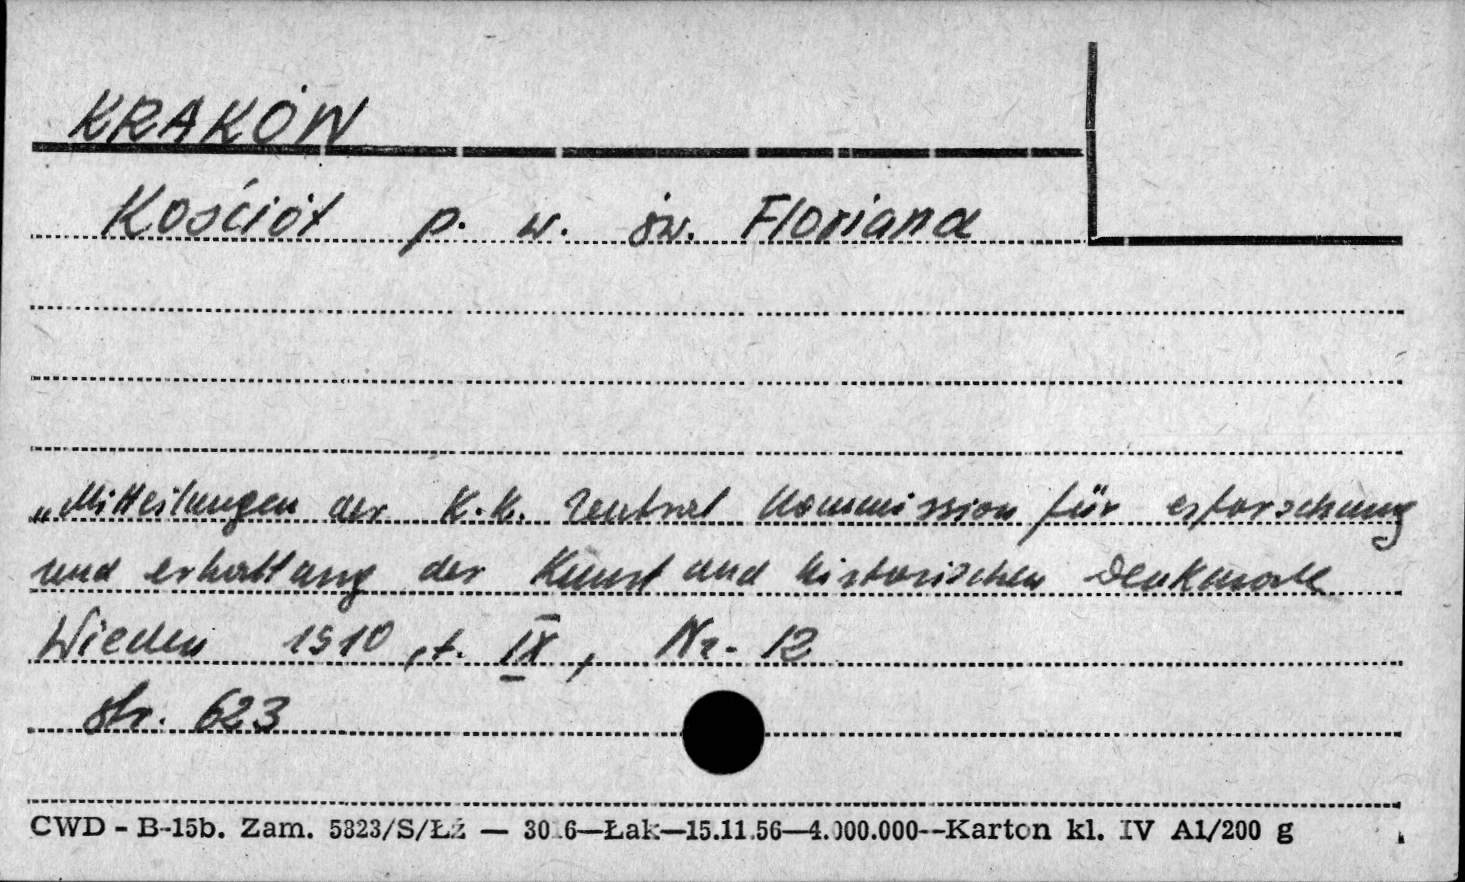 KRAKÓW
Kościół p. w. św. Floriana
„Mitteilungen der K.K. Zentral Kommission für erforschung
und erhaltung der Kunst und historischen Denkmale
Wieden 1910, t. IX, Nr. 12
str. 623
CWD - B-15b. Zam. 5823/S/Łź — 30.6—Łak—15.11.56—4.000.000--Karton kl. IV A1/200 g